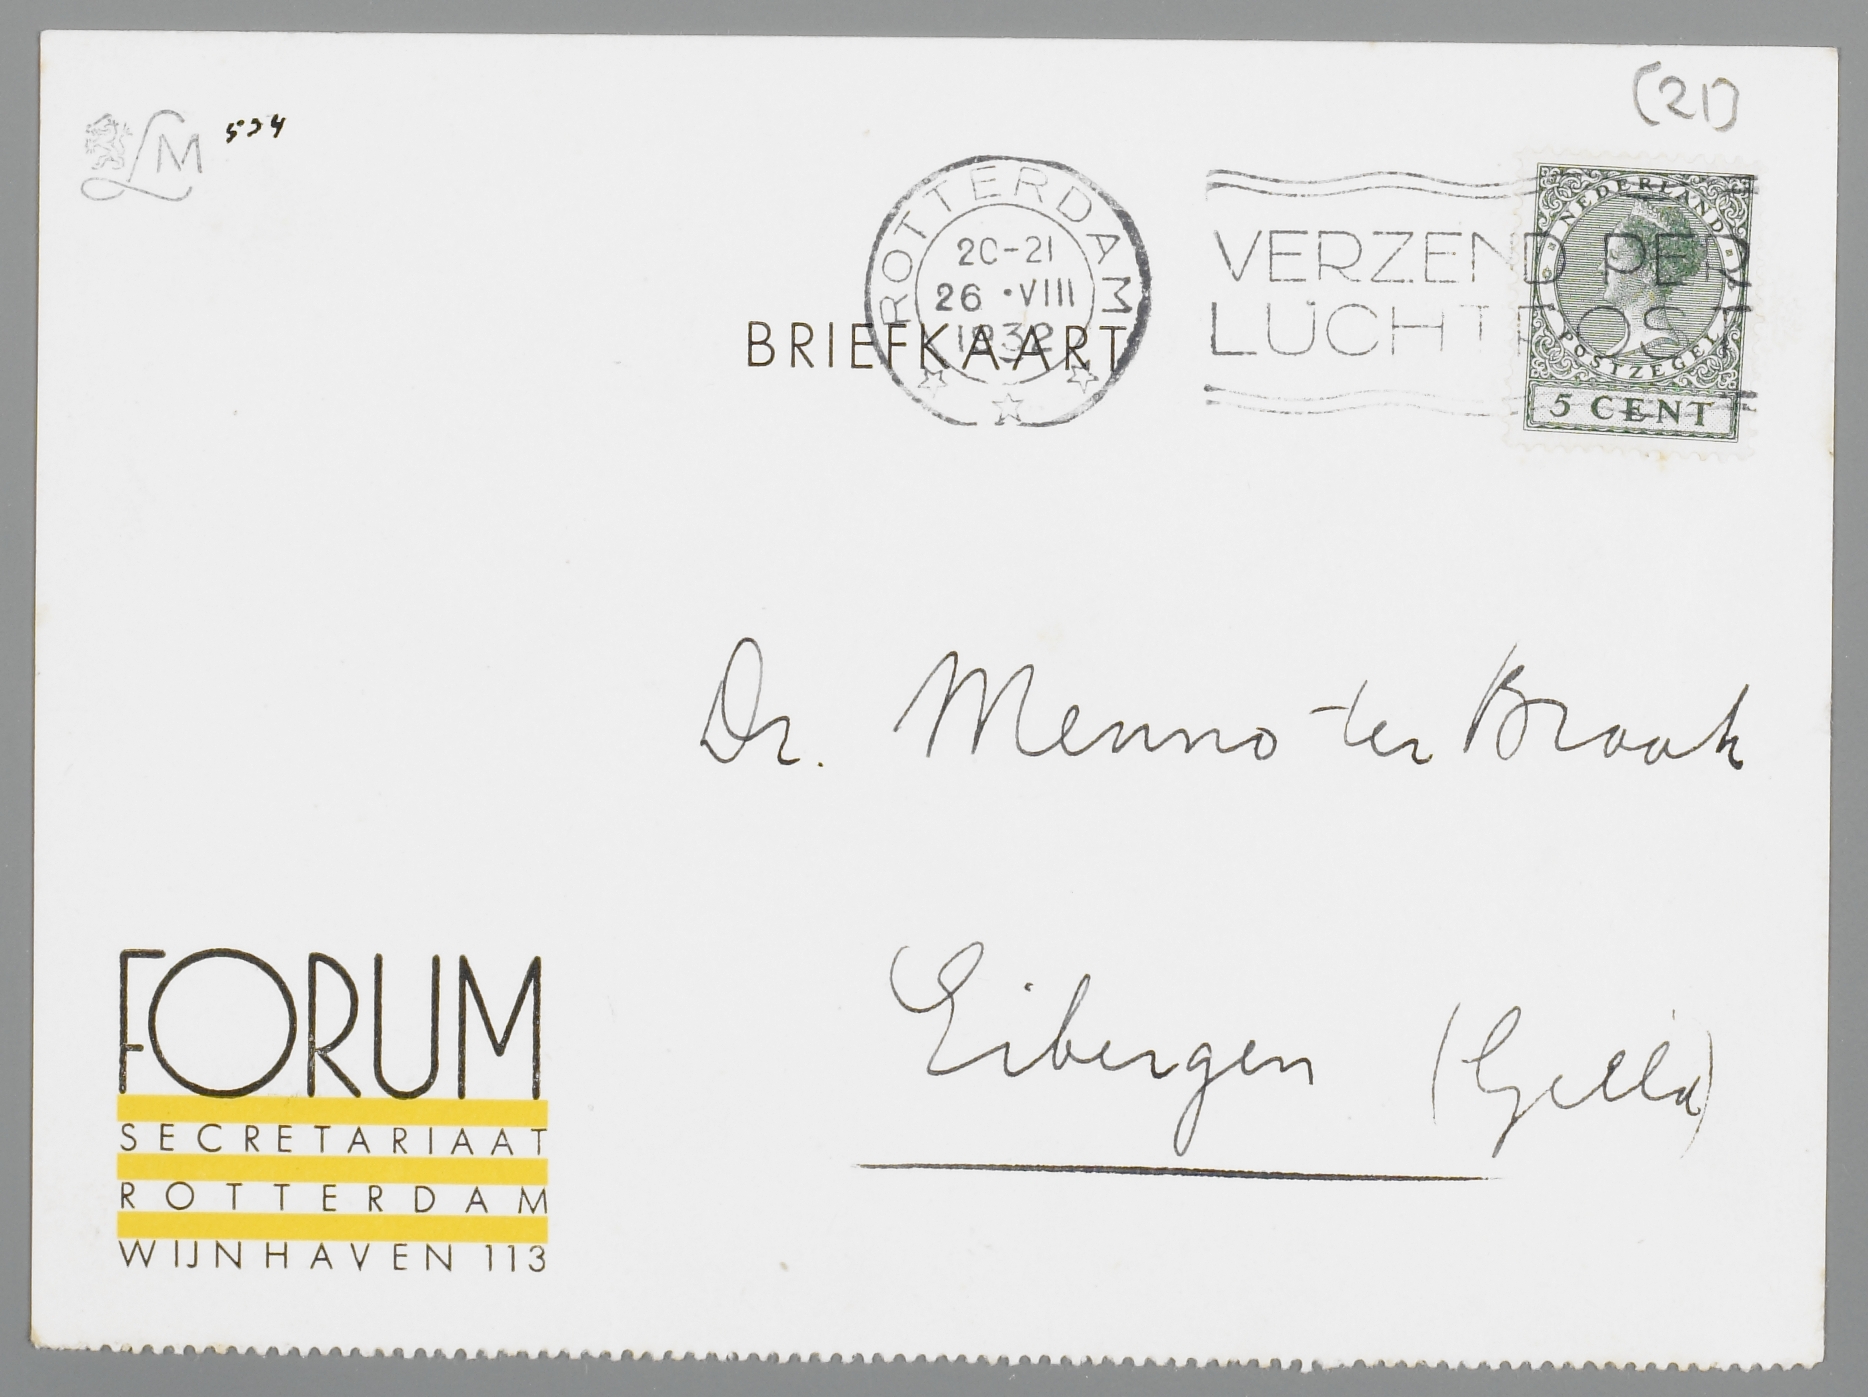 LM 534
(21)
ROTTERDAM
20-21
26 ·VIII
1932
VERZEND PER
LUCHTPOST
NEDERLAND
POSTZEGEL
5 CENT
BRIEFKAART
Dr. Menno ter Braak
Eibergen (Geld)
FORUM
SECRETARIAAT
ROTTERDAM
WIJNHAVEN 113